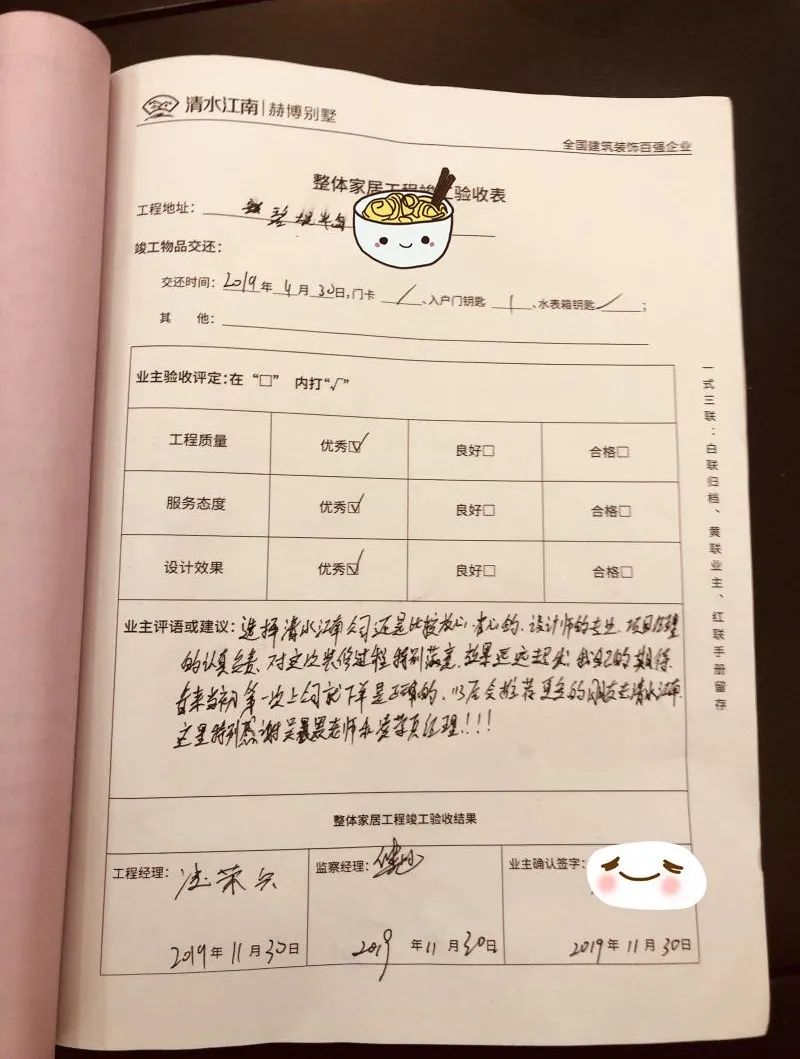 清水江南|赫博别墅
全国建筑装饰百强企业
整体家居工程竣工验收表
工程地址：
竣工物品交还：
交还时间：2019年4月30日，门卡／、入户门钥匙1、水表箱钥匙／；
其 他：
业主验收评定：在“□” 内打“√”
工程质量 优秀☑ 良好□ 合格□
服务态度 优秀☑ 良好□ 合格□
设计效果 优秀☑ 良好□ 合格□
业主评语或建议：选择清水江南公司还是比较放心、省心的、设计师的专业、项目经理
的认真负责、对这次装修过程特别满意、效果远远超出我自己的期待、
看来当初第一次上公司就下单是正确的、以后会推荐更多的朋友去清水江南
这里特别感谢吴晨晨老师和项经理！！！
整体家居工程竣工验收结果
工程经理： 监察经理： 业主确认签字：
2019年11月30日 2019年11月30日 2019年11月30日
一式三联：白联归档、黄联业主、红联手册留存